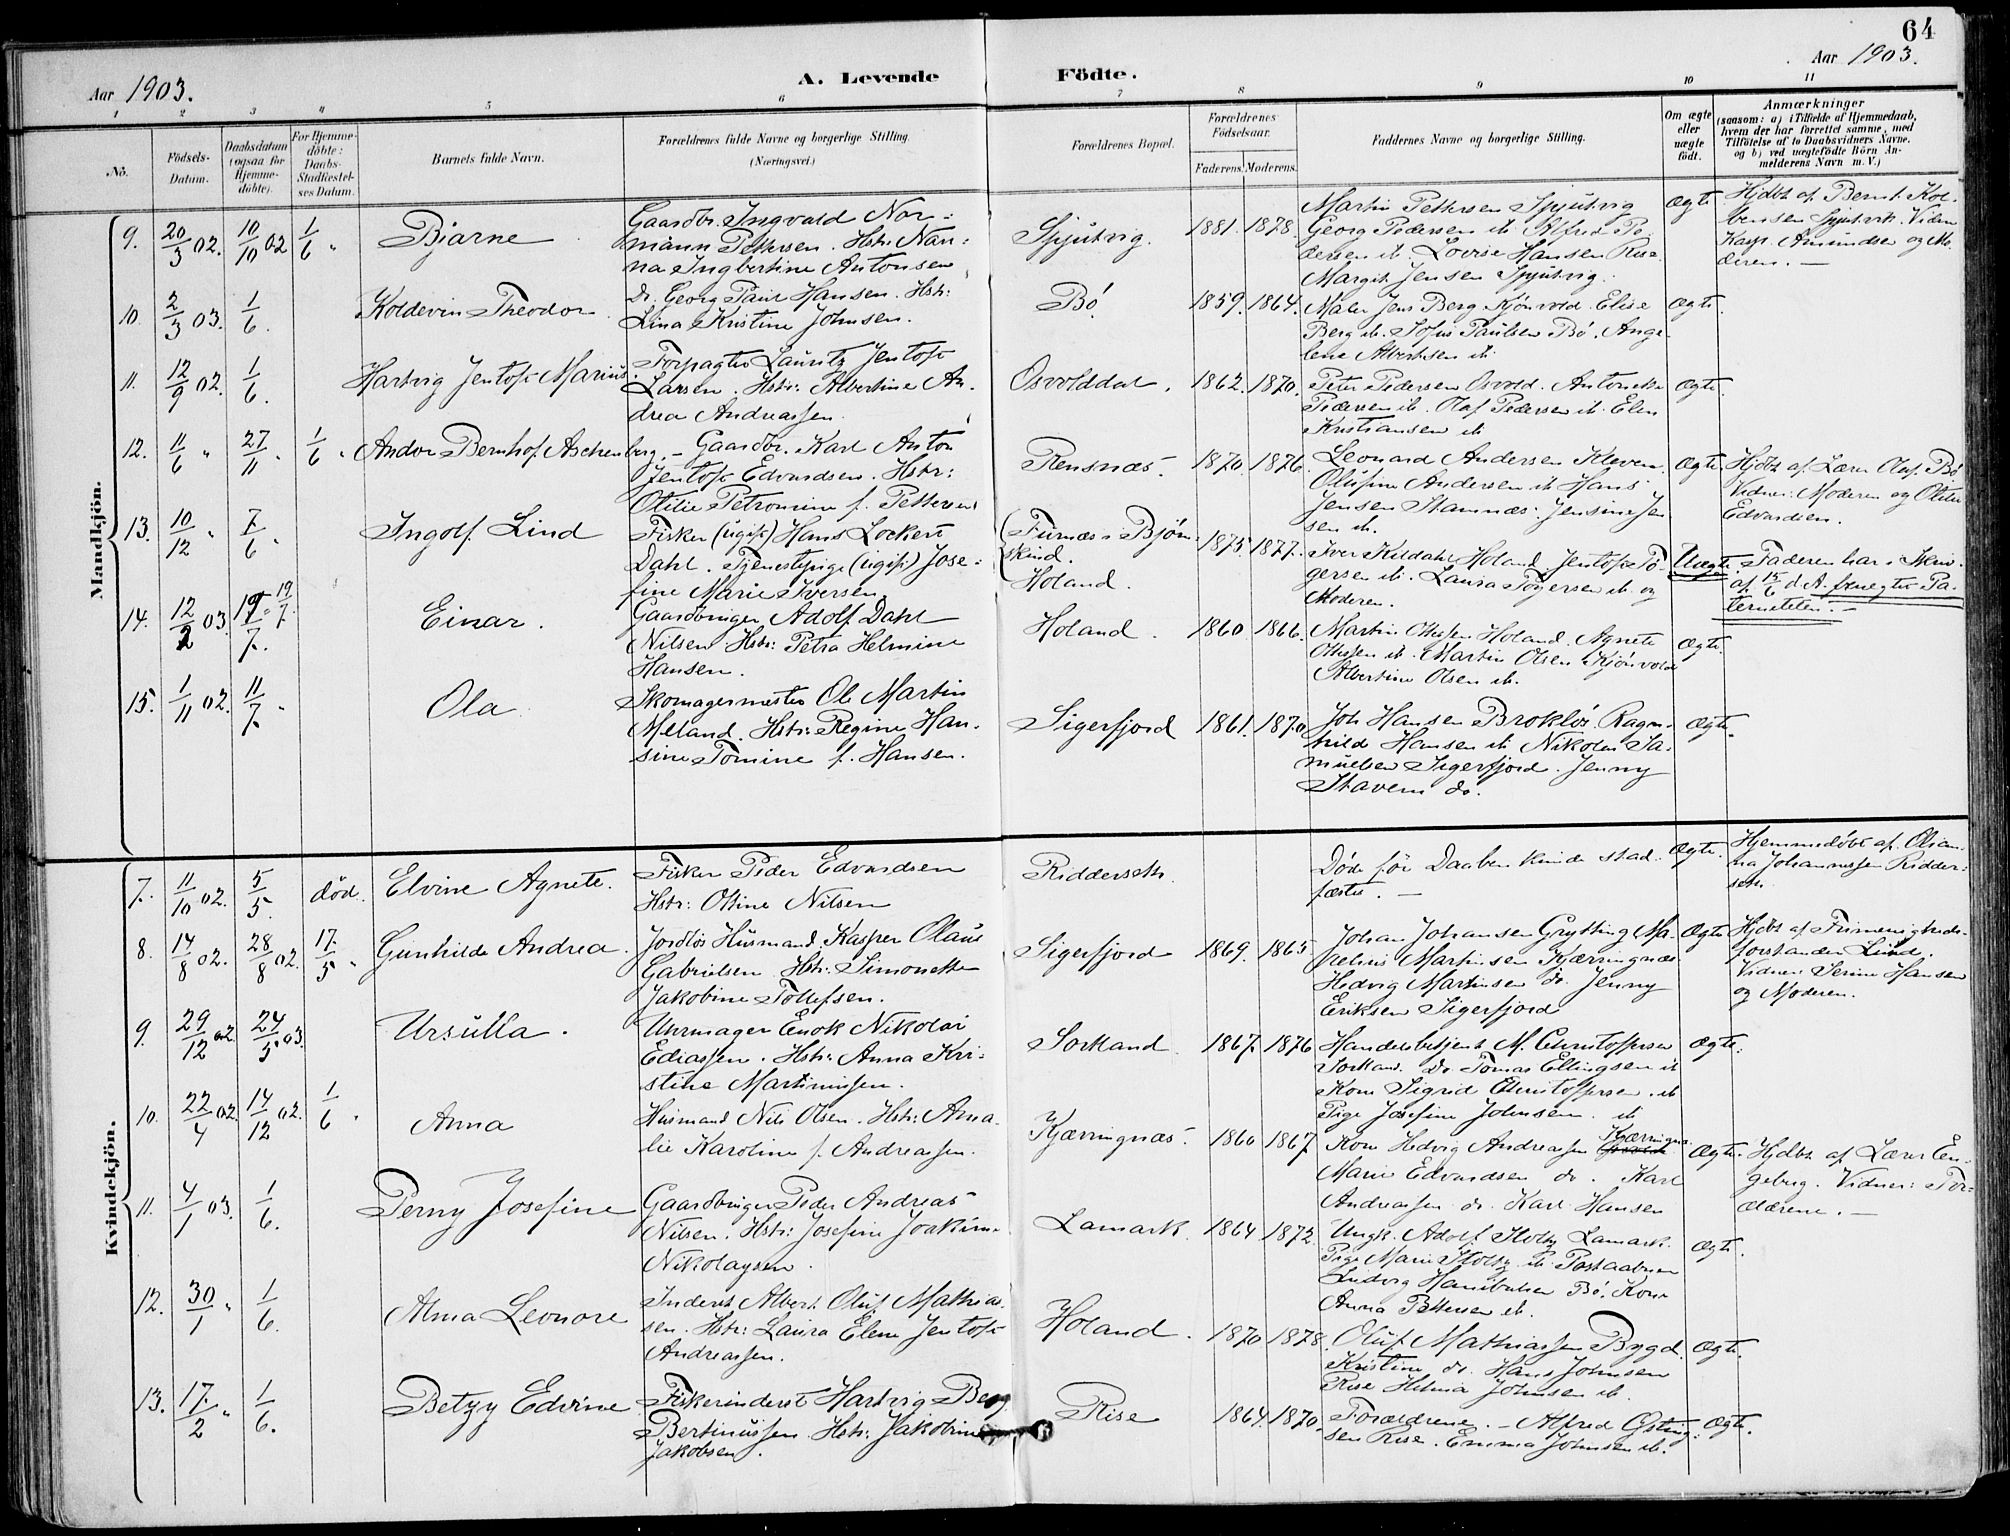 64
Aar 1903.
A. Levende Födte.
Aar 1903.
1 2 3 4 5 6 7 8 9 10 11
No.
Födsels-Datum.
Daabsdatum (ogsaa for Hjemme-döbte).
For Hjemme-döbte: Daabs-Stadfæstelses Datum.
Barnets fulde Navn.
Forældrenes fulde Navne og borgerlige Stilling (Næringsvei.)
Forældrenes Bopæl.
Forældrenes Födselsaar.
Faderens. Moderens.
Faddernes Navne og borgerlige Stilling.
Om ægte eller uægte födt.
Anmærkninger (saasom: a) i Tilfælde af Hjemmedaab, hvem der har forrettet samme, med Tilföielse af to Daabsvidners Navne. og b) ved uægtefödte Börn Anmelderens Navn m. V.)
Mandkjön.
9. 20/3 02. 10/10 02 1/6 "
Bjarne
Gaardbr. Ingvald Nor-
mann Pettersen. Hstr: Nan-
na Ingbertine Antonsen
Spjutvig. 1881. 1878.
Martin Pettersen Spjutvig
Georg Pedersen ib. Alfred Pe-
dersen ib. Lovise Hansen Rise.
Margit Jensen Spjutvig.
Ægte
Hjdbt af Bernt Kol-
bensen Spjutvik. Vidne
Kasp. Amundsen og Mo-
deren. —
10. 2/3 03. 1/6.
Koldevin Theodor
Do. Georg Paul Hansen. Hstr:
Lina Kristine Johnsen.
Bö. 1859. 1864.
Maler Jens Berg Kjönvold. Elise
Berg ib. Sofus Paulsen Bö. Ange-
lene Albertsen ib.
Ægte
11. 12/9 02. 1/6.
Hartvig Jentoft Marius.
Forpagter Lauritz Jentoft
Larsen. Hstr: Albertine An-
drea Andreassen.
Osvolddal. 1862. 1870.
Peter Pedersen Osvold. Antonette
Pedersen ib. Olaf Pedersen ib. Elen
Kristiansen ib
Ægte.
12. 11/6 " 27/11 " 1/6 "
Andor Bernhof Aschenberg. —
Gaardbr. Karl Anton
Jentoft Edvardsen. Hstr:
Otilie Petromine f. Pettersen
Rensnæs. 1870. 1876.
Leonard Andersen Kleven.
Olufine Andersen ib Hans
Jensen Stamnæs. Jensine Jen
sen ib.
Ægte.
Hjdbt af Lærer Olaf. Bö
Vidner: Moderen og Otilie
Edvardsen.
13. 10/12 " 7/6 "
Ingolf Lind
Fisker (ugift) Hans Lockert
Dahl. Tjenestepige (ugift) Jose-
fine Marie Iversen
(Furnæs i Bjørn-
skind.
Holand.
1875. 1877.
Iver Kildahl Holand. Jentoft Tö-
gersen ib. Laura Tögersen ib. og
Moderen.
Uægte.
Faderen har i Skriv.
af 15/6 d. A. benegtet Pa-
terniteten. —
14. 12/2 03. 19/7. 19/7.
Einar.
Gaardbruger Adolf Dahl
Nilsen Hstr: Petra Helmine
Hansen.
Holand. 1860 1866.
Martin Ottesen Holand. Agnete
Ottesen ib. Martin Olsen Kjönvold
Albertine Olsen ib.
Ægte.
15. 1/11 02. 11/7. "
Ola
Skomagermester Ole Martin
Meland. Hstr: Regine Han-
sine Tomine f. Hansen.
Sigerfjord 1861. 1870.
Joh Hansen Broklös. Ragn-
hild Hansen ib Nikolai Sa-
muelsen Sigerfjord. Jenny
Stavem do.
Ægte.
Kvindekjön.
7. 11/10 02. 5/5. död.
Elvine Agnete.
Fisker Peder Edvardsen
Hstr: Ottine Nilsen
Ridderseth.
Döde för Daaben kunde stad-
fæstes. —
Ægte.
Hjemmedöbt af Olian-
na Johannessen Ridder-
seth.
8. 14/8 02. 28/8 02. 17/5 "
Gunhilde Andrea.
Jordlös Husmand Kasper Olaus
Gabrielsen. Hstr: Simonette
Jakobine Tollefsen.
Sigerfjord 1869. 1865.
Johan Johansen Grytting Ma-
relius Martinsen Kjærringnæs.
Hedvig Martinsen do. Jenny
Eriksen Sigerfjord
Ægte
Hjdbt af Frimenigheds-
forstander Lind.
Vidner Serine Hansen
og Moderen.
9. 29/12 02. 24/5 03.
Ursulla.
Uhrmager Enok Nikolai
Ediassen. Hstr: Anna Kri-
stine Martinussen.
Sortland. 1867. 1876
Handelsbetjent M. Christoffersen
Sortland. Do Tomas Ellingsen ib
Kone Sigrid Christoffersen. ib
Pige Josefine Johnsen. ib
Ægte.
10. 22/4 02. 14/12 02. 1/6 "
Anna
Husmand Nils Olsen. Hstr: Ama-
lie Karoline f. Andreassen.
Kjærringnæs. 1860 1867.
Kone Hedvig Andreassen Kjærringnæs
Marie Edvardsen do. Karl
Andreassen do. Karl Hansen
Ægte.
Hjdbt af Lærer En-
geberg. Vidner: For-
ældrene. —
11. 4/1 03. 1/6.
Perny Josefine
Gaardbruger Peder Andreas
Nilsen. Hstr: Josefine Joakime
Nikolaysen.
Lamark. 1864 1872.
Ungk. Adolf Holtz Lamark.
Pige Marie Holtz ib. Postaabner
Ludvig Hanibalsen Bö. Kone
Anna Pettersen ib.
Ægte.
12. 30/1 " 1/6.
Alma Leonore
Inderst Albert Oluf Mathia-
sen. Hstr: Laura Elene Jentoft
Andreassen.
Holand. 1870 1878.
Oluf Mathiassen Bygd.
Kristine do. Hans Johnsen
Rise Hilma Johnsen ib.
Ægte.
13. 17/2 " 1/6.
Betzy Edvine
Fiskerinderst Hartvig Berg
Bertinussen. Hstr: Jakobine
Jakobsen.
Rise 1864. 1870.
Forældrene. — Alfred
sen Rise. Emma Johnsen ib.
Ægte.